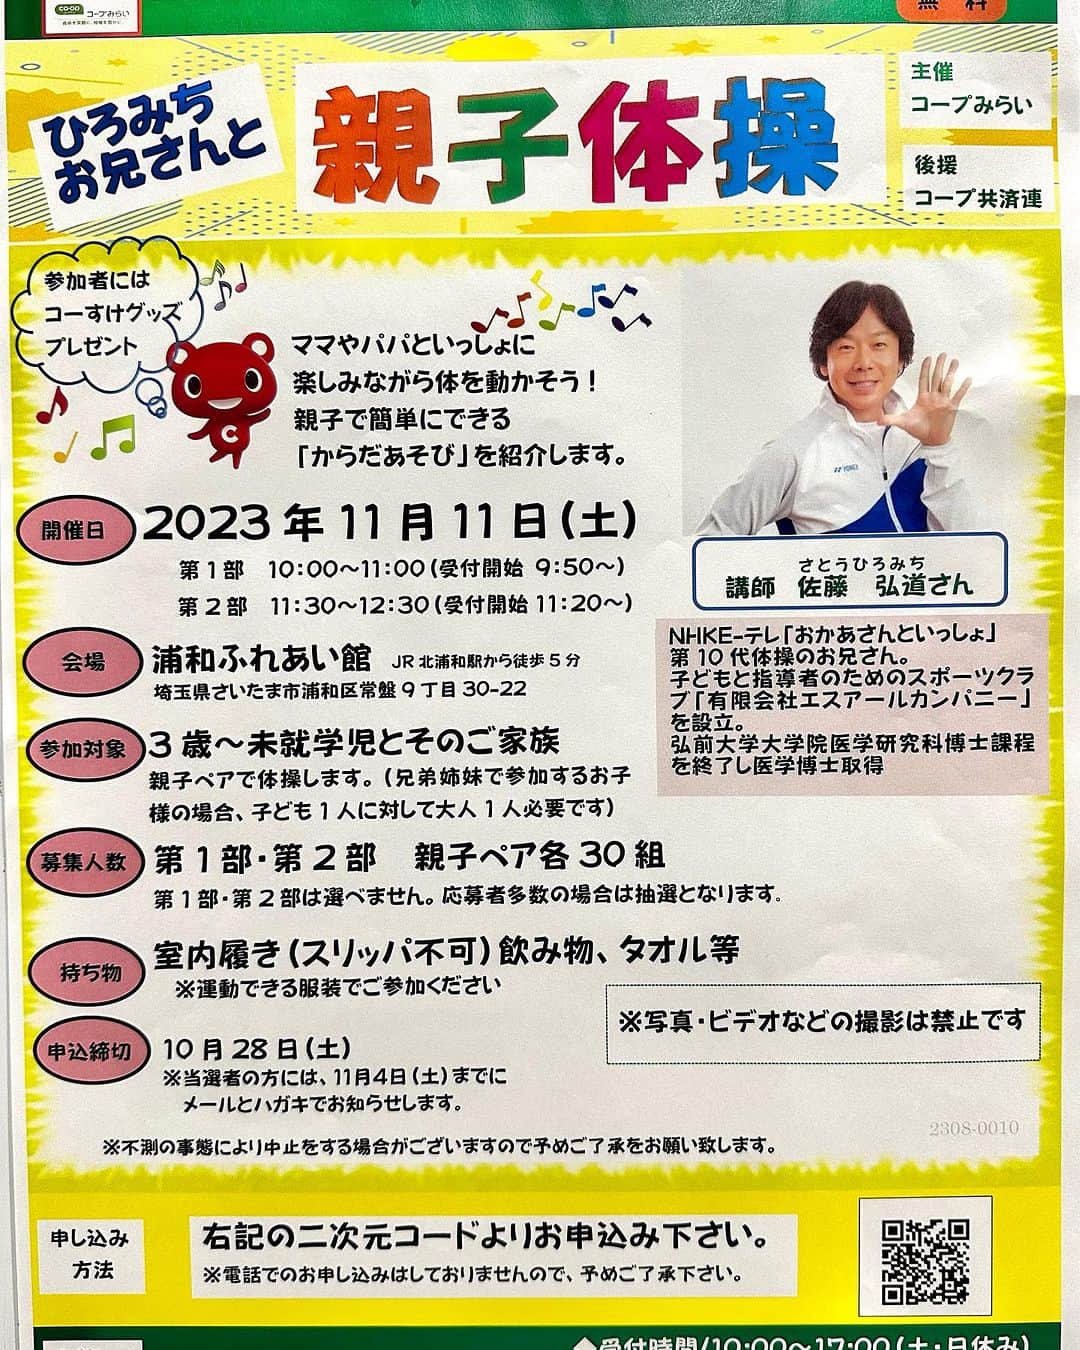 CO・OP コープみらい
無料
ひろみち
お兄さんと
親子体操
主催
コープみらい
後援
コープ共済連
参加者には
コーすけグッズ
プレゼント
C
ママやパパといっしょに
楽しみながら体を動かそう！
親子で簡単にできる
「からだあそび」を紹介します。
YONEX
さとうひろみち
講師 佐藤 弘道さん
NHKE-テレ「おかあさんといっしょ」
第10代体操のお兄さん。
子どもと指導者のためのスポーツクラ
ブ「有限会社エスアールカンパニー」
を設立。
弘前大学大学院医学研究科博士課程
を終了し医学博士取得
開催日 2023年11月11日(土)
第1部 10:00～11:00(受付開始 9:50～)
第2部 11:30～12:30(受付開始11:20～)
会場 浦和ふれあい館 JR北浦和駅から徒歩5分
埼玉県さいたま市浦和区常盤9丁目30-22
参加対象 3歳～未就学児とそのご家族
親子ペアで体操します。(兄弟姉妹で参加するお子
様の場合、子ども1人に対して大人1人必要です)
募集人数 第1部・第2部 親子ペア各30組
第1部・第2部は選べません。応募者多数の場合は抽選となります。
持ち物 室内履き(スリッパ不可)飲み物、タオル等
※運動できる服装でご参加ください
※写真・ビデオなどの撮影は禁止です
申込締切 10月28日(土)
※当選者の方には、11月4日(土)までに
メールとハガキでお知らせします。
2308-0010
※不測の事態により中止をする場合がございますので予めご了承をお願い致します。
申し込み
方法
右記の二次元コードよりお申込み下さい。
※電話でのお申し込みはしておりませんので、予めご了承下さい。
◆受付時間/10:00～17:00(土・日休み)